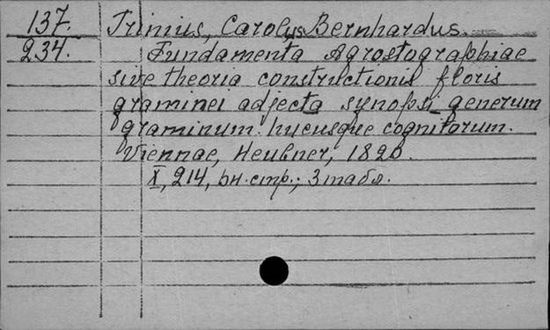 137. Trinius, Carolus Bernhardus.
234. Fundamenta Agrostographiae
sive theoria constructionis floris
graminei adjecta synopsi generum
graminum hucusque cognitorum.
Viennae, Heubner, 1820.
X, 214, bн. стр.; 3 табл.